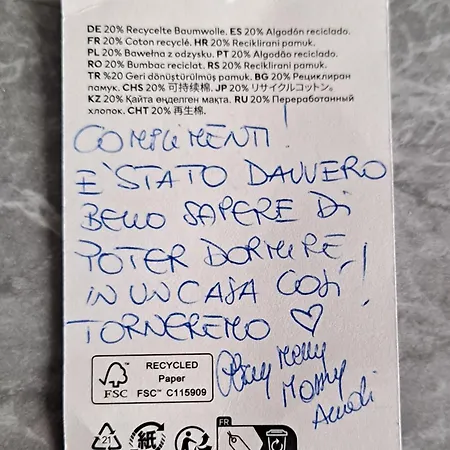 DE 20% Recycelte Baumwolle. ES 20% Algodón reciclado.
FR 20% Coton recyclé. HR 20% Reciklirani pamuk.
PL 20% Bawełna z odzysku. PT 20% Algodão reciclado.
RO 20% Bumbac reciclat. RS 20% Reciklirani pamuk.
TR %20 Geri dönüştürülmüş pamuk. BG 20% Рециклиран
памук. CHS 20% 可持续棉. JP 20% リサイクルコットン。
KZ 20% Қайта өңделген мақта. RU 20% Переработанный
хлопок. CHT 20% 再生棉.
COMPLIMENTI!
E' STATO DAVVERO
BELLO SAPERE DI
POTER DORMIRE
IN UN CASA COSÌ!
TORNEREMO ♡
RECYCLED
Paper
FSC™ C115909
FSC
FR
21
紙